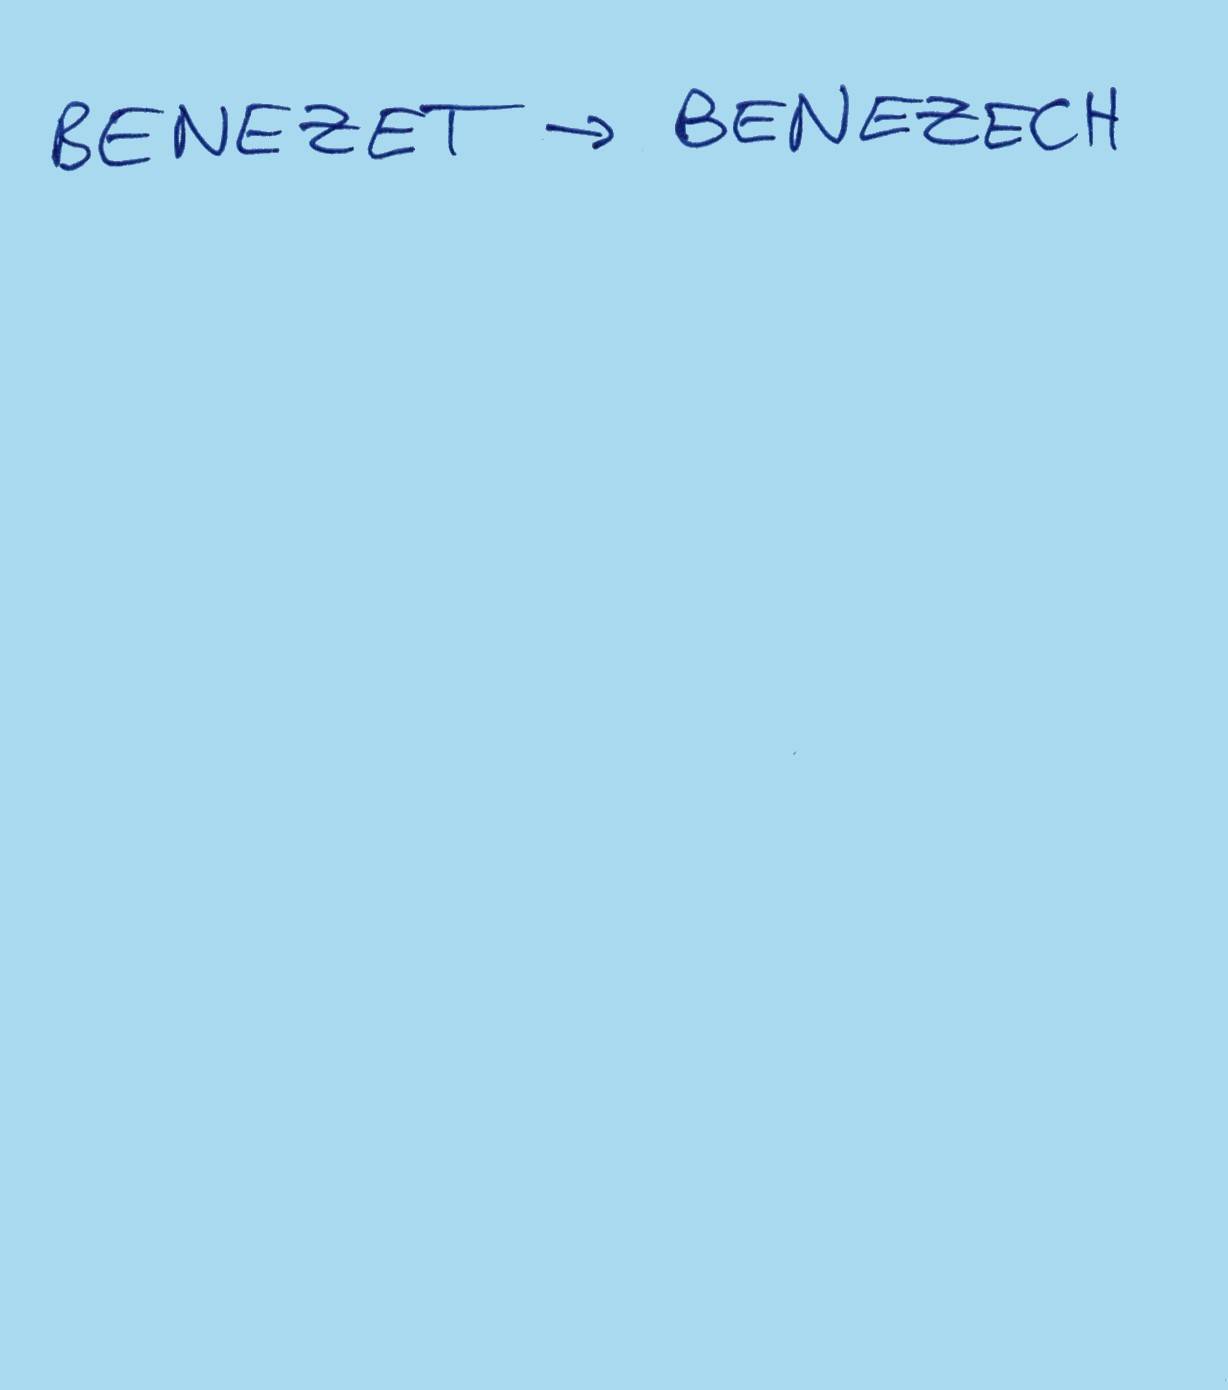 BENEZET → BENEZECH